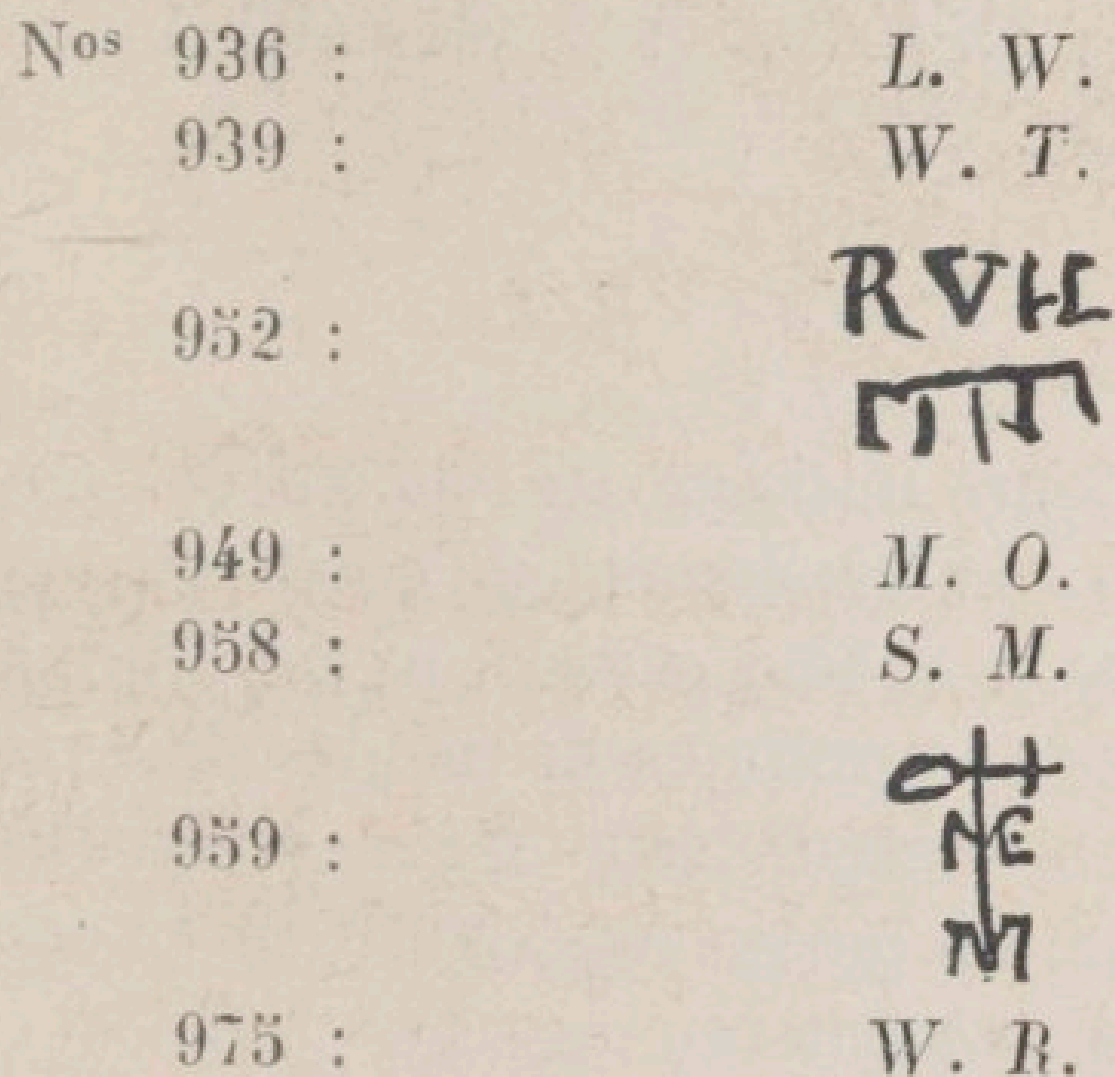 Nos 936 : L. W.
939 : W. T.
952 : RVH
949 : M. O.
958 : S. M.
959 : NE M
975 : W. R.